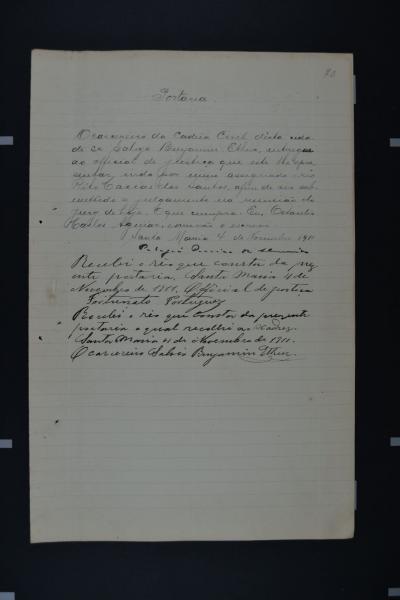 Portaria.
O carcereiro da Cadeia Civil desta cida-
de Galvão Benjamin Ethur, entregue
ao official de justiça que este lhe apre
sentar, indo por mim assignado, o réo
dos Santos, afim de ser sub-
mettido a julgamento na reunião do
jury de hoje. O que cumpra. Eu,
escrivão o escrevi.
Santa Maria 4 de Novembro 1911
Recebi o réo que consta da prez
ente portaria. Santa Maria 4 de
Novembro de 1911. Official de justiça
Fortunato Portuguez
Recebi o réo que consta da prezente
portaria o qual recolhi ao xadrez.
Santa Maria 4 de Novembro de 1911.
O carcereiro Benjamin Ethur.